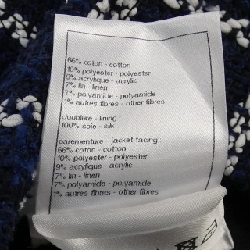 66% coton - cotton
10% polyester - polyester
9% acrylique - acrylic
7% lin - linen
7% polyamide - polyamide
1% autres fibres - other fibres
doublure - lining
100% soie - silk
parementure - jacket facing
66% coton - cotton
10% polyester - polyester
9% acrylique - acrylic
7% lin - linen
7% polyamide - polyamide
1% autres fibres - other fibres